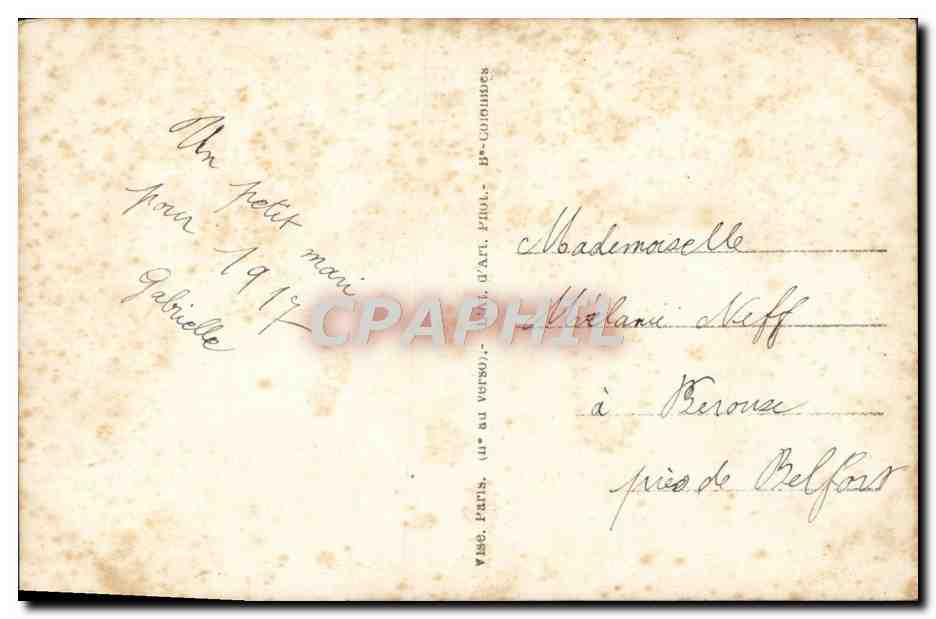 Un petit mari
pour 1917
Gabrielle
Visé. Paris. (n° au verso).- Imp. d'Art. Phot.- Bs-Colombes
Mademoiselle
Mélanie Neff
à Perouse
près de Belfort
CPAPHIL